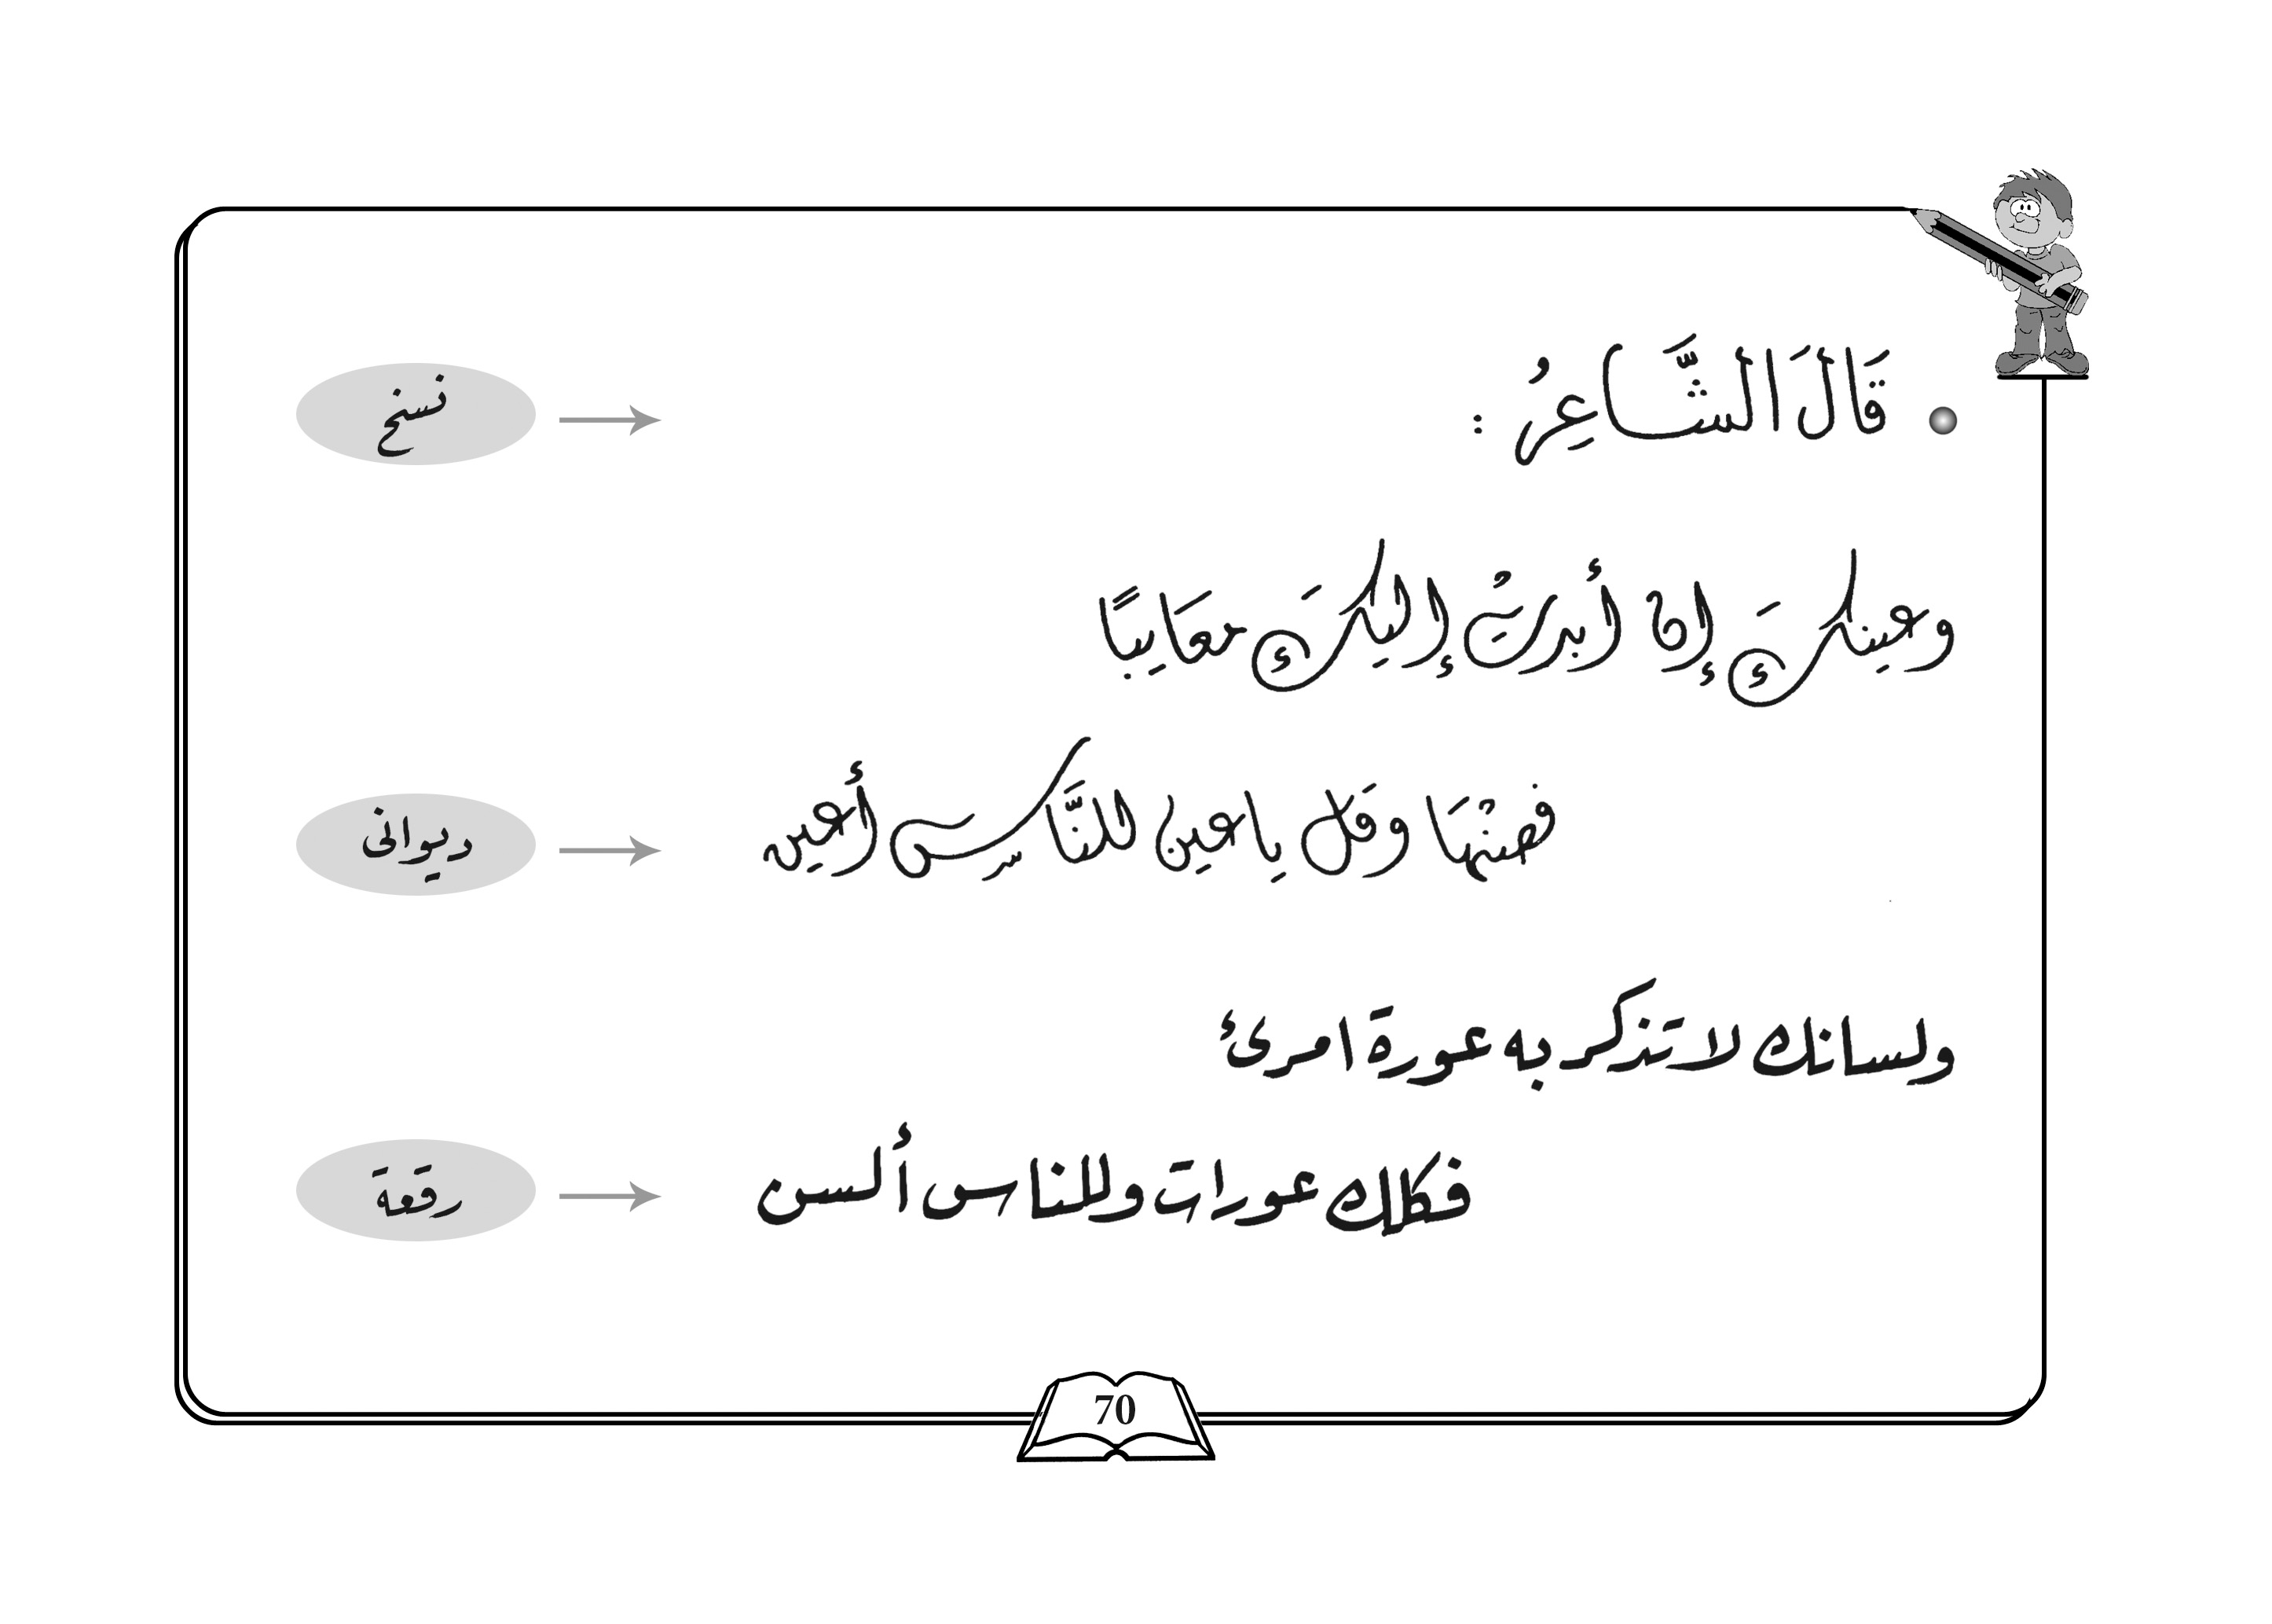 قَالَ الشَّاعِرُ :
نسخ
وعينكَ إن أبدتْ إليكَ معَايبًا
فصنْهَا وقَل ياعين للنَّاسِ أَعين
ديوانى
ولسانك لا تذكر به عورة امرئ
فكلك عورات وللناس ألسن
رقعة
70